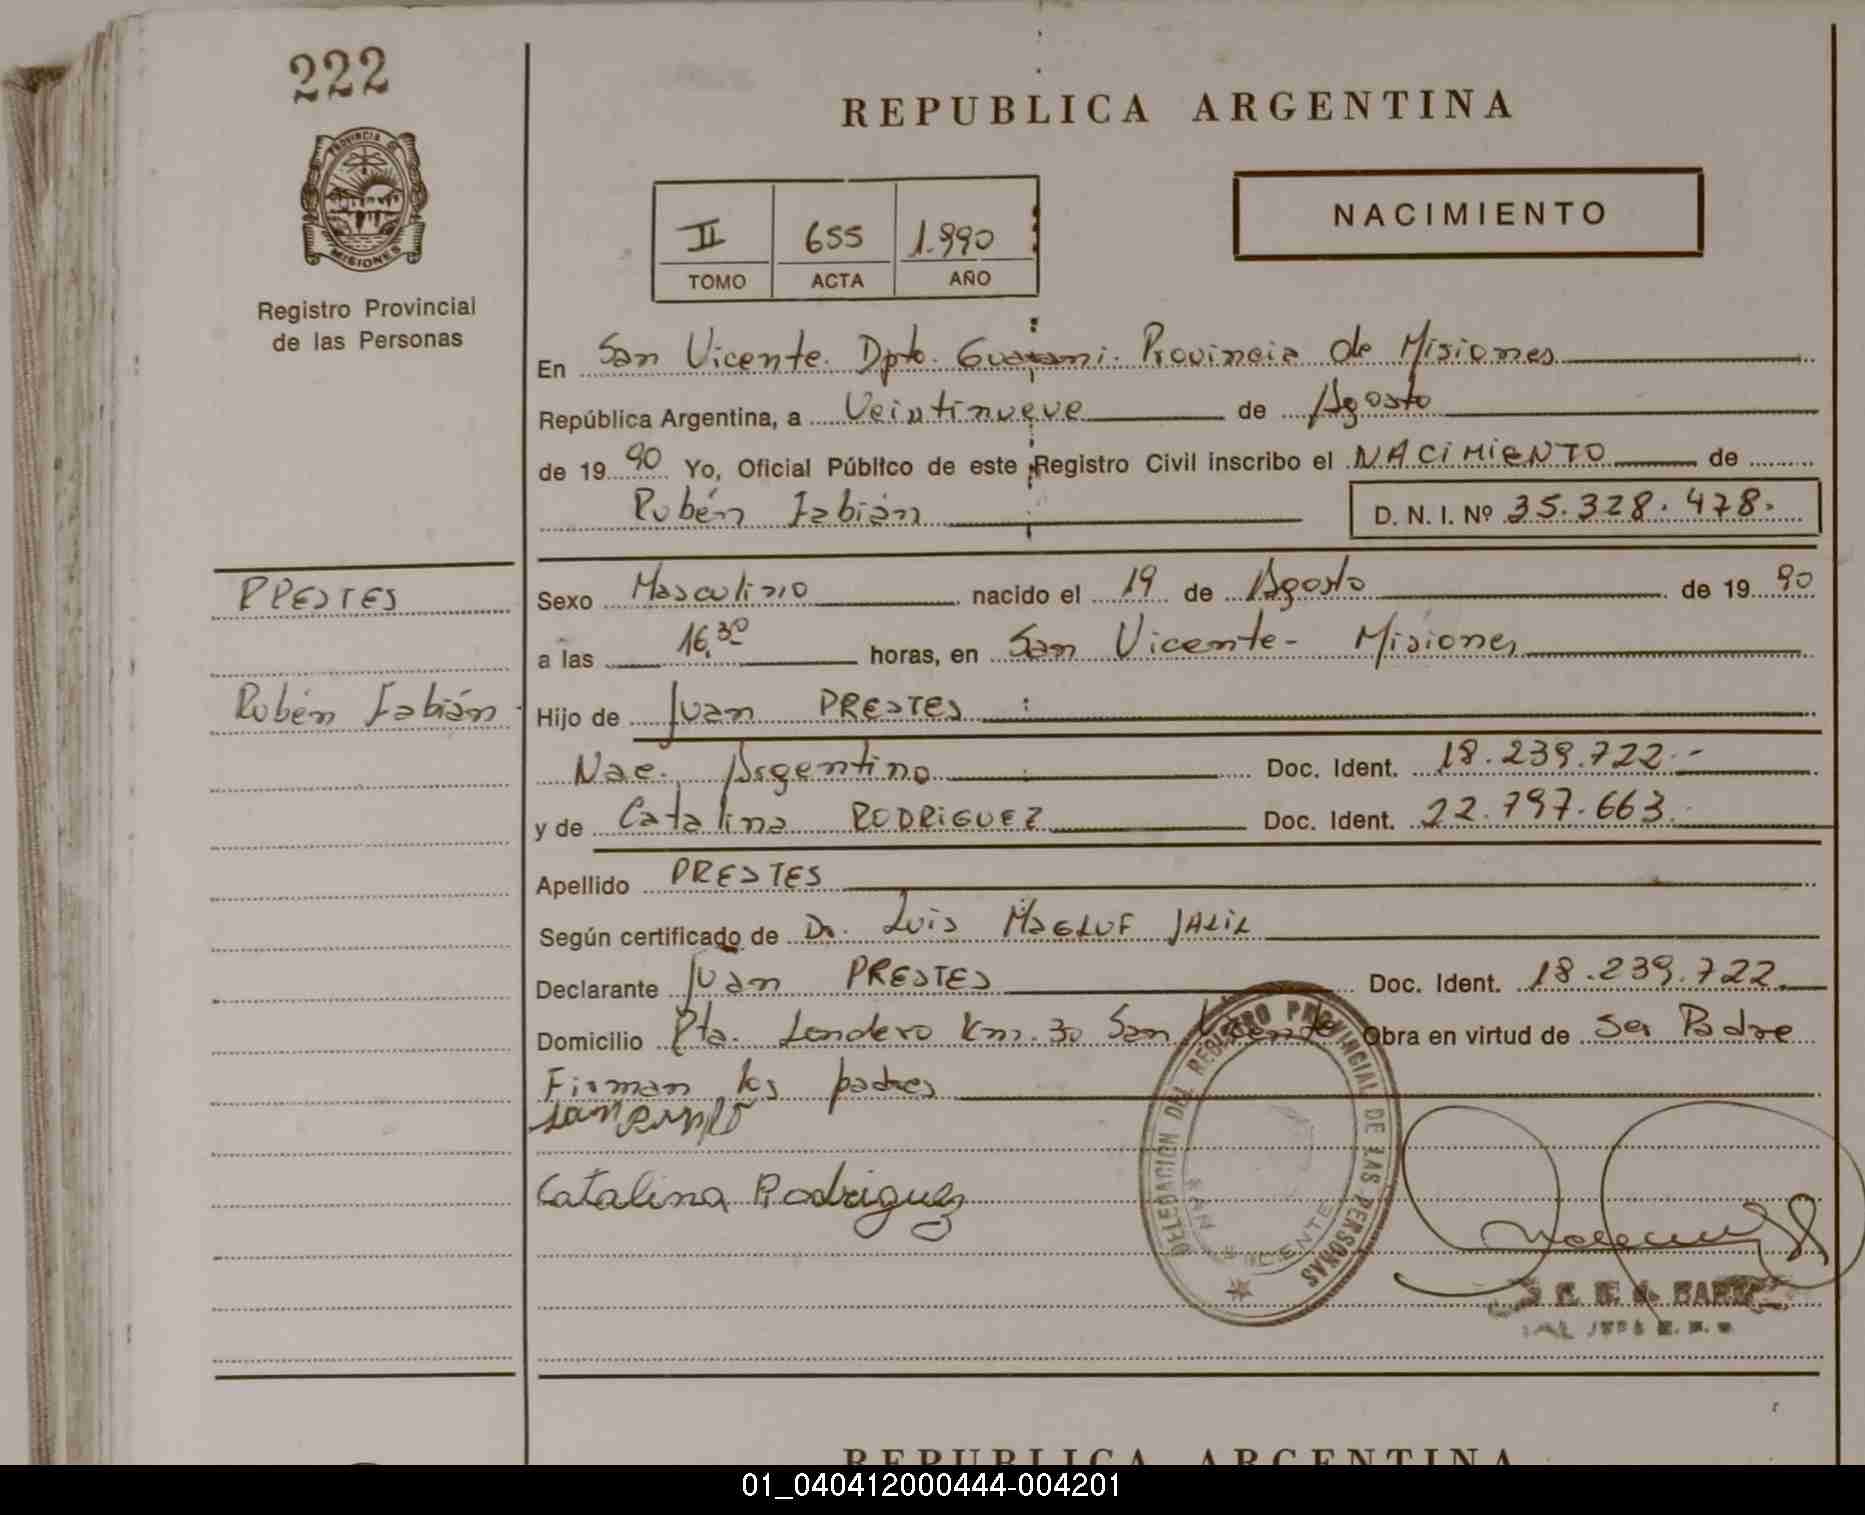 222
PROVINCIA DE
MISIONES
Registro Provincial
de las Personas
REPUBLICA ARGENTINA
NACIMIENTO
II 655 1.990
TOMO ACTA AÑO
En San Vicente. Dpto. Guarani. Provincia de Misiones
República Argentina, a Veintinueve de Agosto
de 1990 Yo, Oficial Público de este Registro Civil inscribo el NACIMIENTO de
Rubén Fabián D. N. I. Nº 35.328.478.
PRESTES
Rubén Fabián
Sexo Masculino nacido el 19 de Agosto de 1990
a las 16,30 horas, en San Vicente - Misiones
Hijo de Juan PRESTES
Nac. Argentino Doc. Ident. 18.239.722.-
y de Catalina RODRIGUEZ Doc. Ident. 22.797.663.
Apellido PRESTES
Según certificado de Dr. Luis MAGLUF JALIL
Declarante Juan PRESTES Doc. Ident. 18.239.722.
Domicilio Pta. Londero Km. 30 San Vicente Obra en virtud de Ser Padre
Firman los padres
Catalina Rodriguez
DELEGACION DEL REGISTRO PROVINCIAL DE LAS PERSONAS
SAN VICENTE
REPUBLICA ARGENTINA
01_040412000444-004201